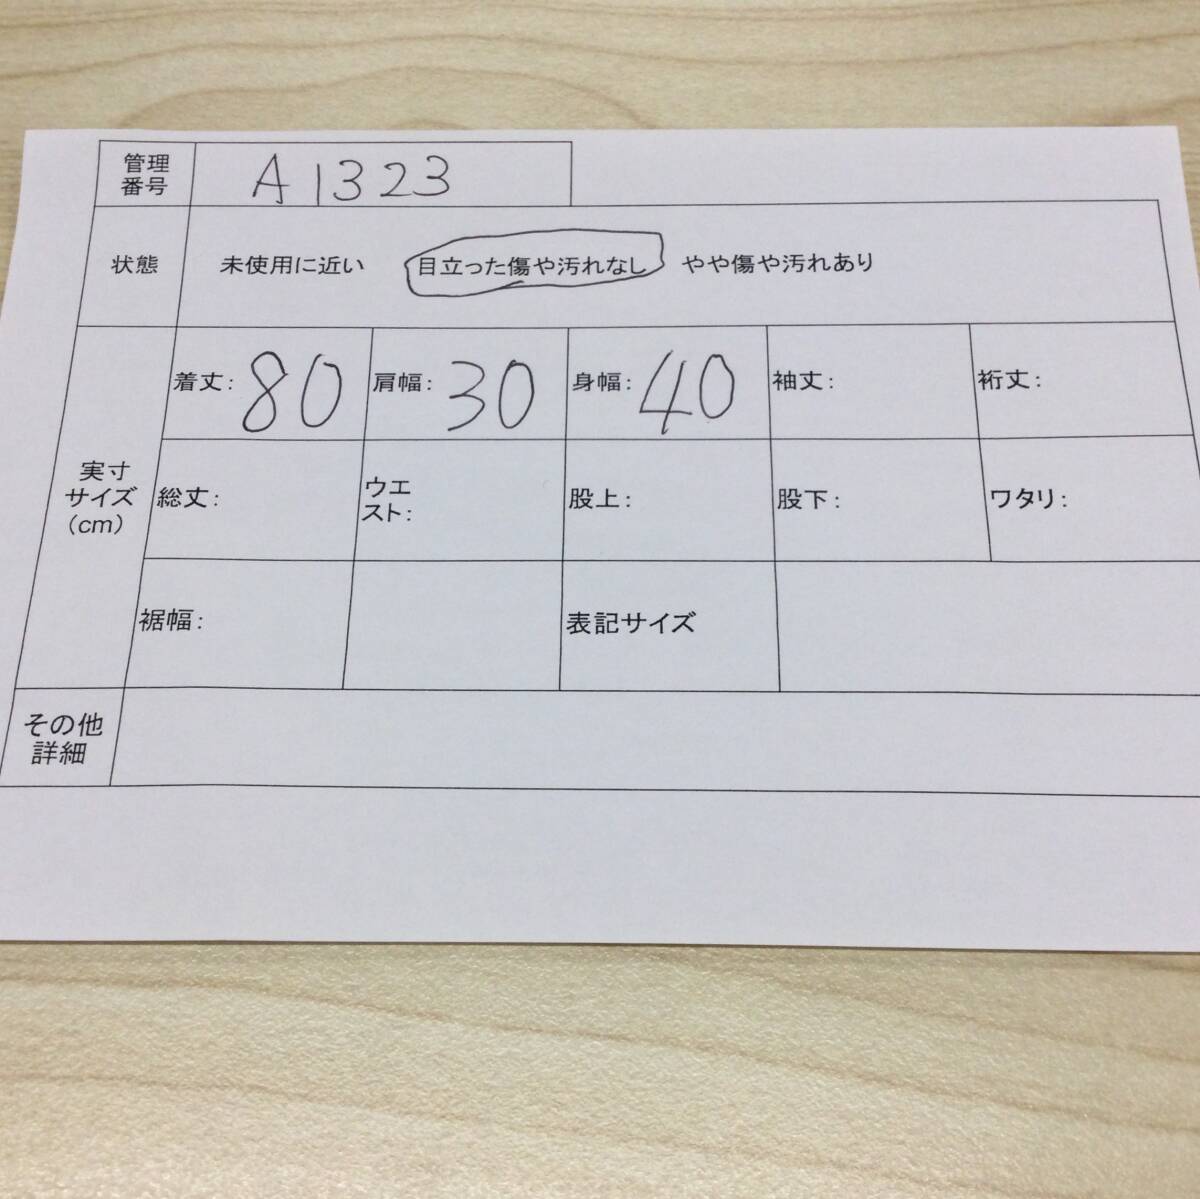 管理
番号
A1323
状態
未使用に近い 目立った傷や汚れなし やや傷や汚れあり
実寸
サイズ
(cm)
着丈: 80 肩幅: 30 身幅: 40 袖丈: 裄丈:
総丈: ウエ
スト: 股上: 股下: ワタリ:
裾幅: 表記サイズ
その他
詳細